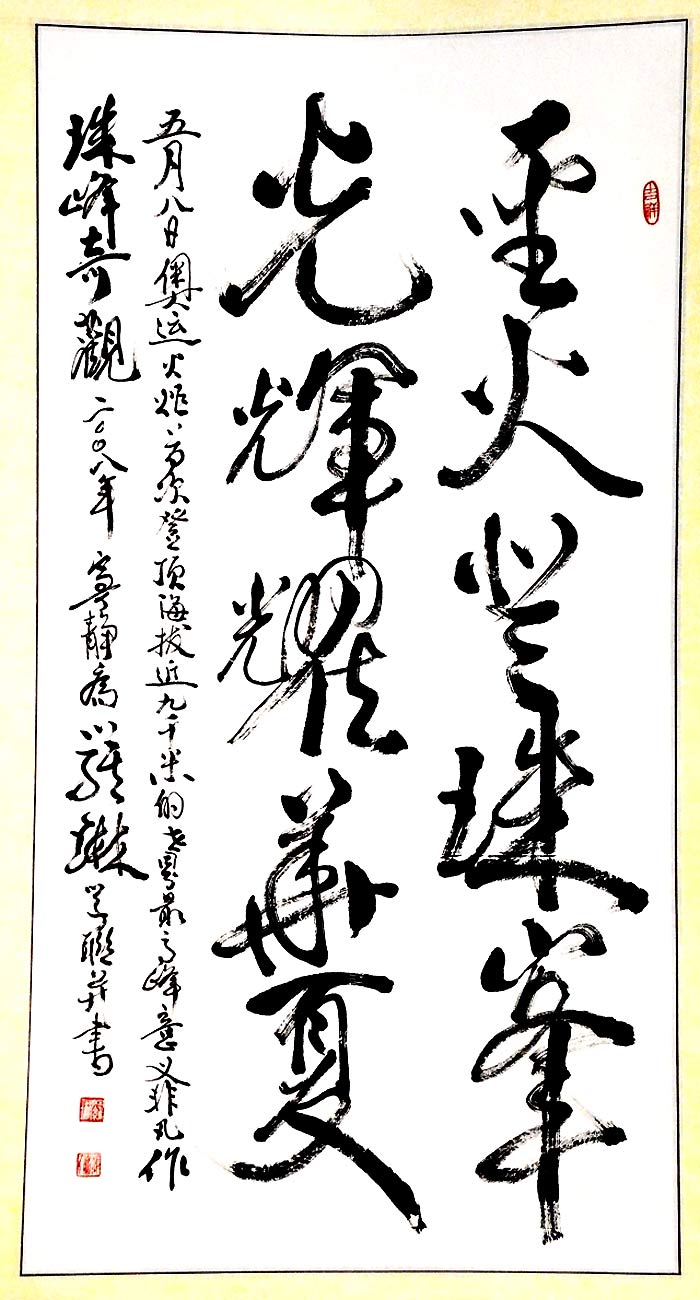 吉祥
圣火登珠峯
光輝耀華夏
五月八日奥运火炬首次登顶海拔近九千米的世界最高峰意义非凡作
珠峰奇觀二〇〇八年寧静斋聯并書